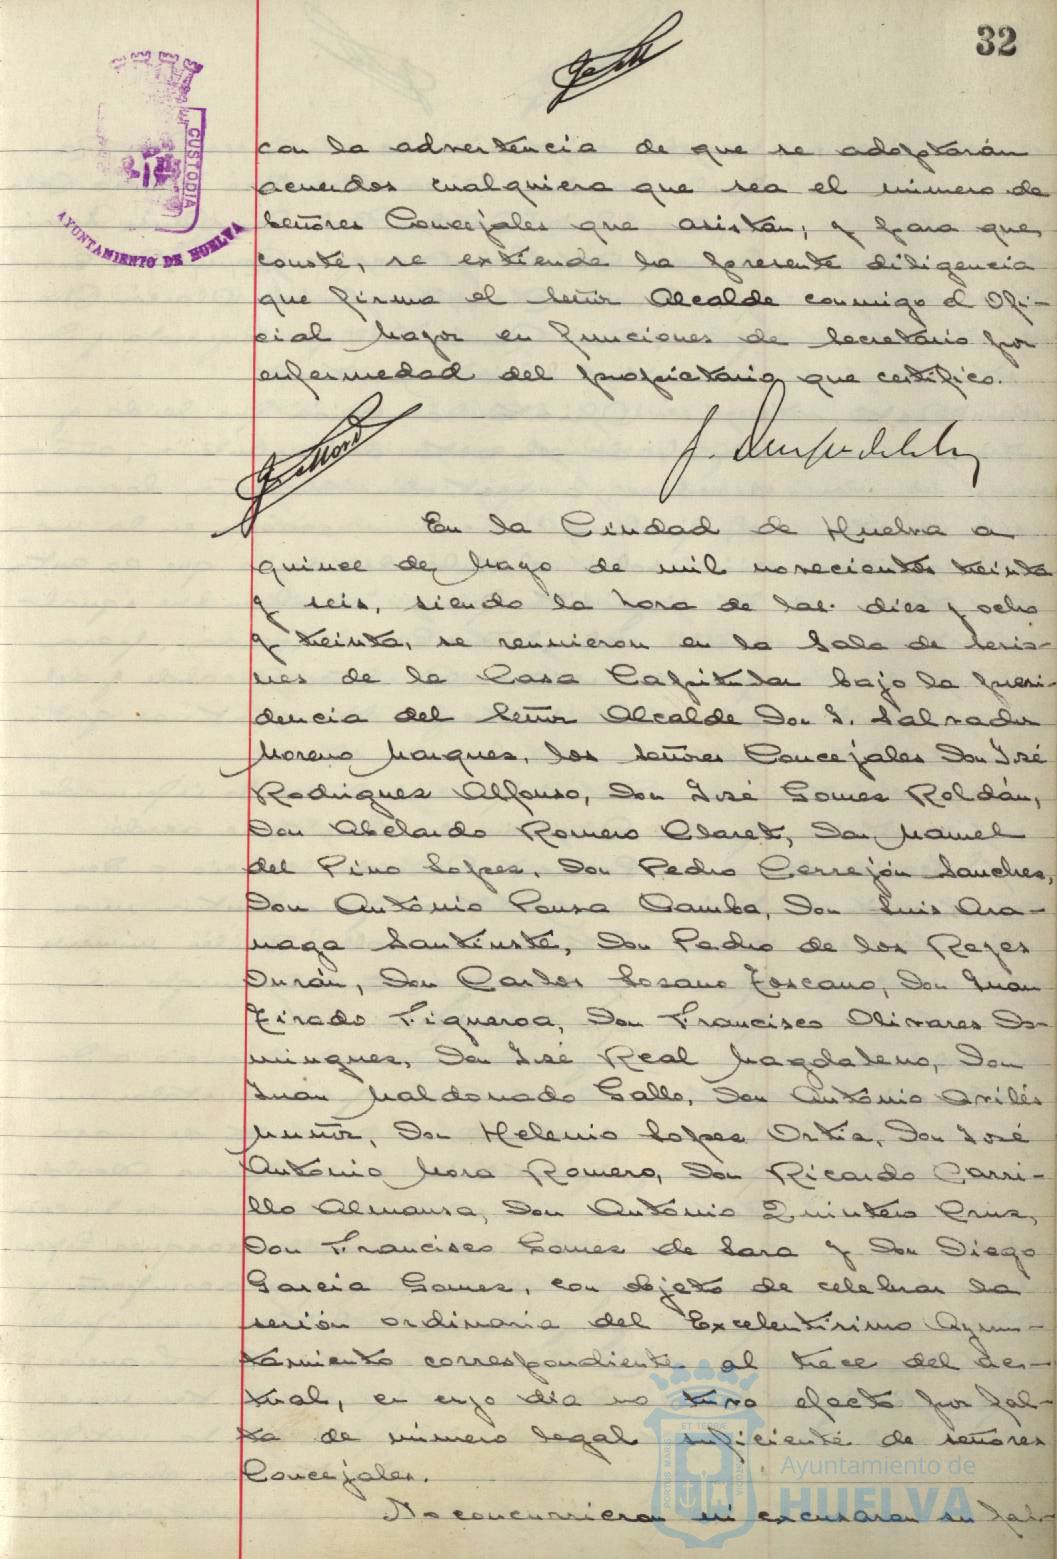 32
CUSTODIA
AYUNTAMIENTO DE HUELVA
con la advertencia de que se adoptarán
acuerdos cualquiera que sea el número de
Señores Concejales que asistan; y para que
conste, se extiende la presente diligencia
que firma el Señor Alcalde conmigo el Ofi-
cial Mayor en funciones de Secretario por
enfermedad del propietario, que certifico.
En la Ciudad de Huelva a
quince de Mayo de mil novecientos treinta
y seis, siendo la hora de las dies y ocho
y treinta, se reunieron en la Sala de Sesio-
nes de la Casa Capitular bajo la presi-
dencia del Señor Alcalde Don J. Salvador
Moreno Marques, los señores Concejales Don José
Rodrigues Alfonso, Don José Gomes Roldán,
Don Abelardo Romero Claret, Don Manuel
del Pino Lopes, Don Pedro Cerrejón Sanches,
Don Antonio Pousa Camba, Don Luis Ara-
naga Santiuste, Don Pedro de los Reyes
Durán, Don Carlos Losano Toscano, Don Juan
Tirado Figueroa, Don Francisco Olivares Do-
mingues, Don José Real Magdaleno, Don
Juan Maldonado Gallo, Don Antonio Avilés
Muñoz, Don Helenio Lopes Ortis, Don José
Antonio Mora Romero, Don Ricardo Carri-
llo Almansa, Don Antonio Quintero Crus,
Don Francisco Gomes de Lara y Don Diego
Garcia Gomes, con objeto de celebrar la
sesión ordinaria del Excelentísimo Ayun-
tamiento correspondiente al trece del ac-
tual, en cuyo día no tuvo efecto por fal-
ta de número legal suficiente de señores
Concejales.
No concurrieron ni excusaron su fal-
Ayuntamiento de
HUELVA